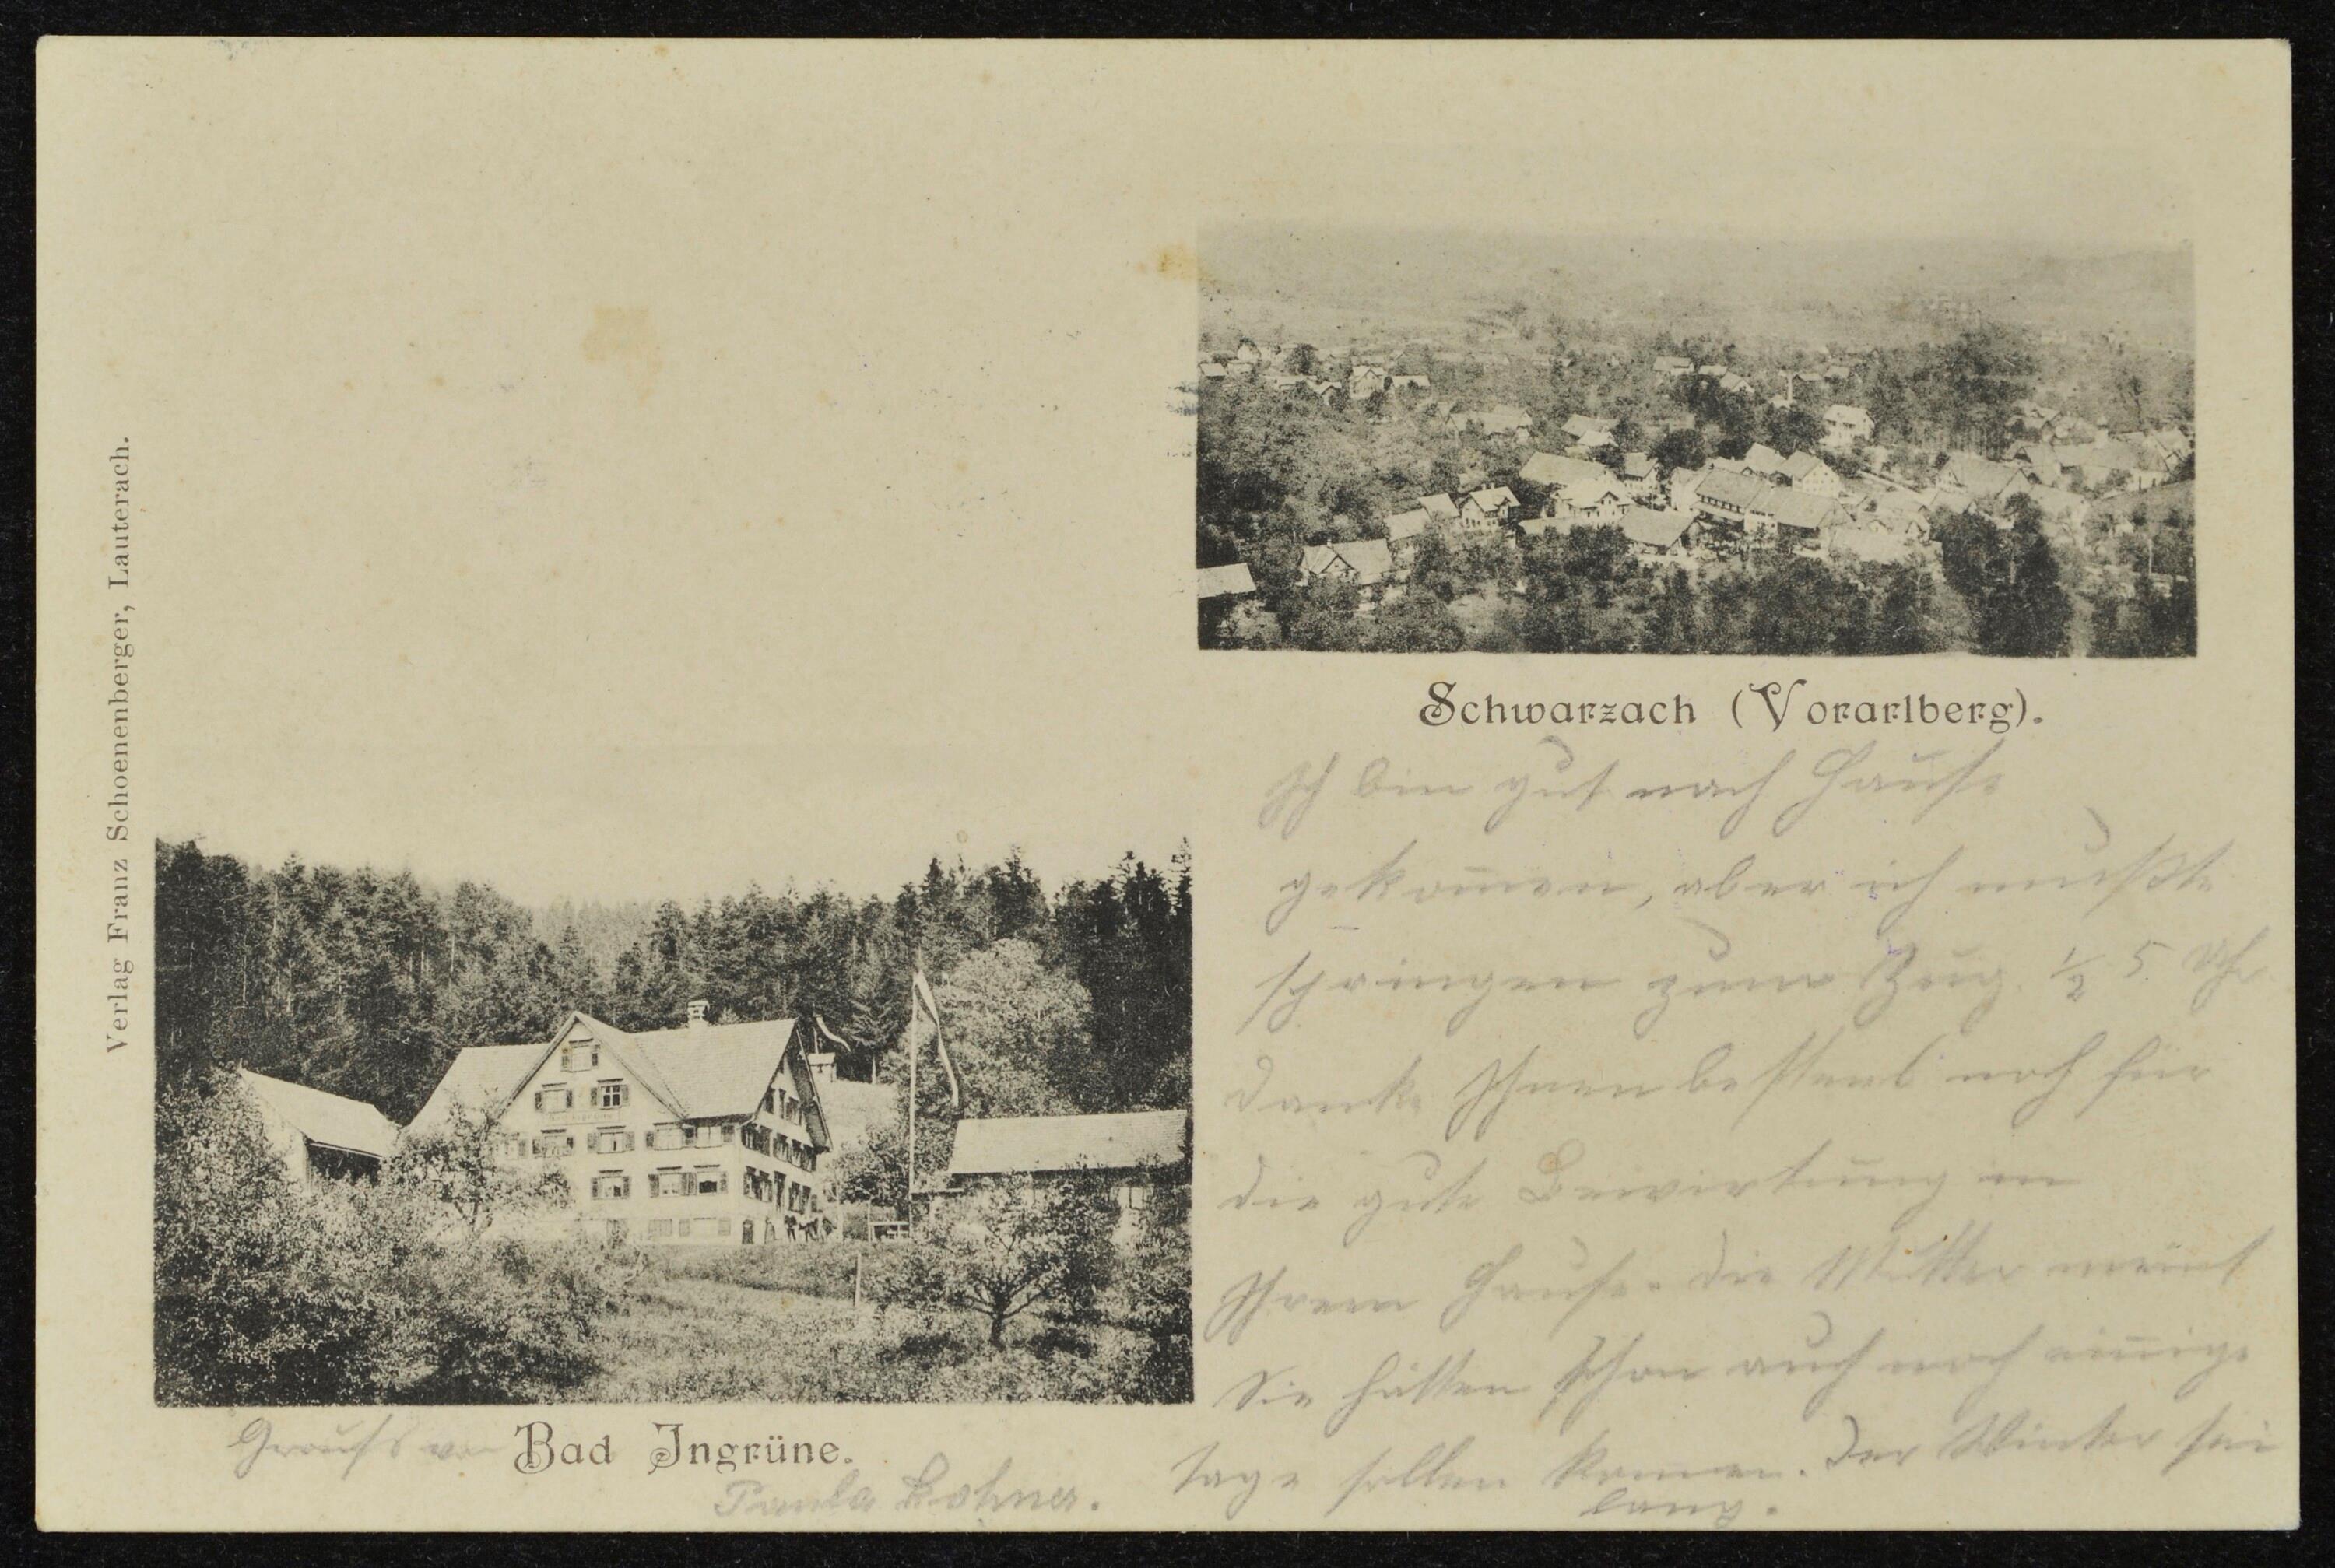 Verlag Franz Schoenenberger, Lauterach.
Schwarzach (Vorarlberg).
Ich bin gut nach Hause
gekom̄en, aber ich mußte
springen zum Zug. ½ 5 Uhr
danke Ihnen bestens noch für
die gute Bewirtung in
Ihrem Hause. Die Mutter meint
Sie hätten schon auch noch einige
tage sollen kommen. Der Winter sei
lang.
Gruß von Bad Ingrüne.
Paula Lohner.